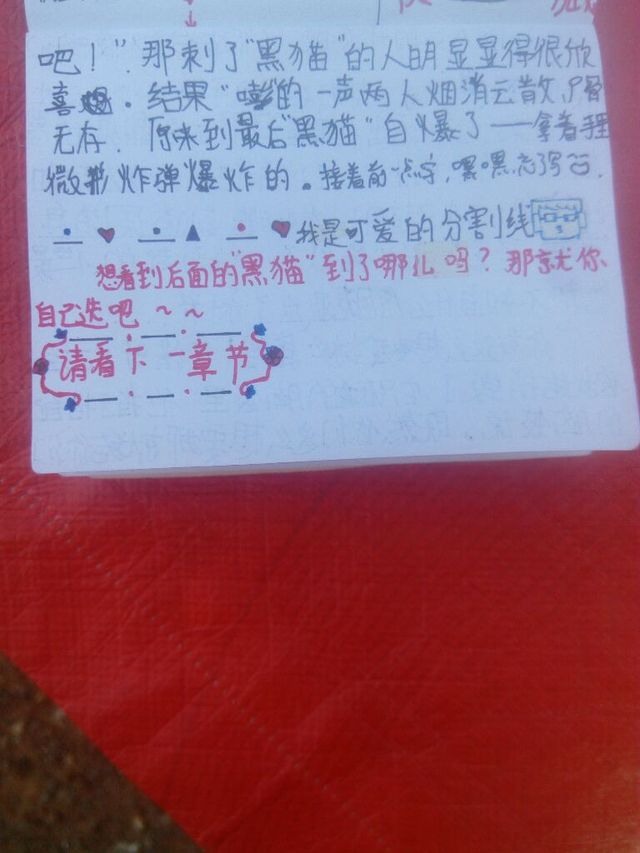 吧！”那刺了“黑猫”的人明显显得很欣
喜。结果“嘭”的一声两人烟消云散，尸骨
无存．原来到最后“黑猫”自爆了——拿着
微形炸弹爆炸的。接着前一点字，嘿嘿忘了写
我是可爱的分割线
想看到后面的“黑猫”到了哪儿吗？那就你
自己选吧～～
请看下一章节